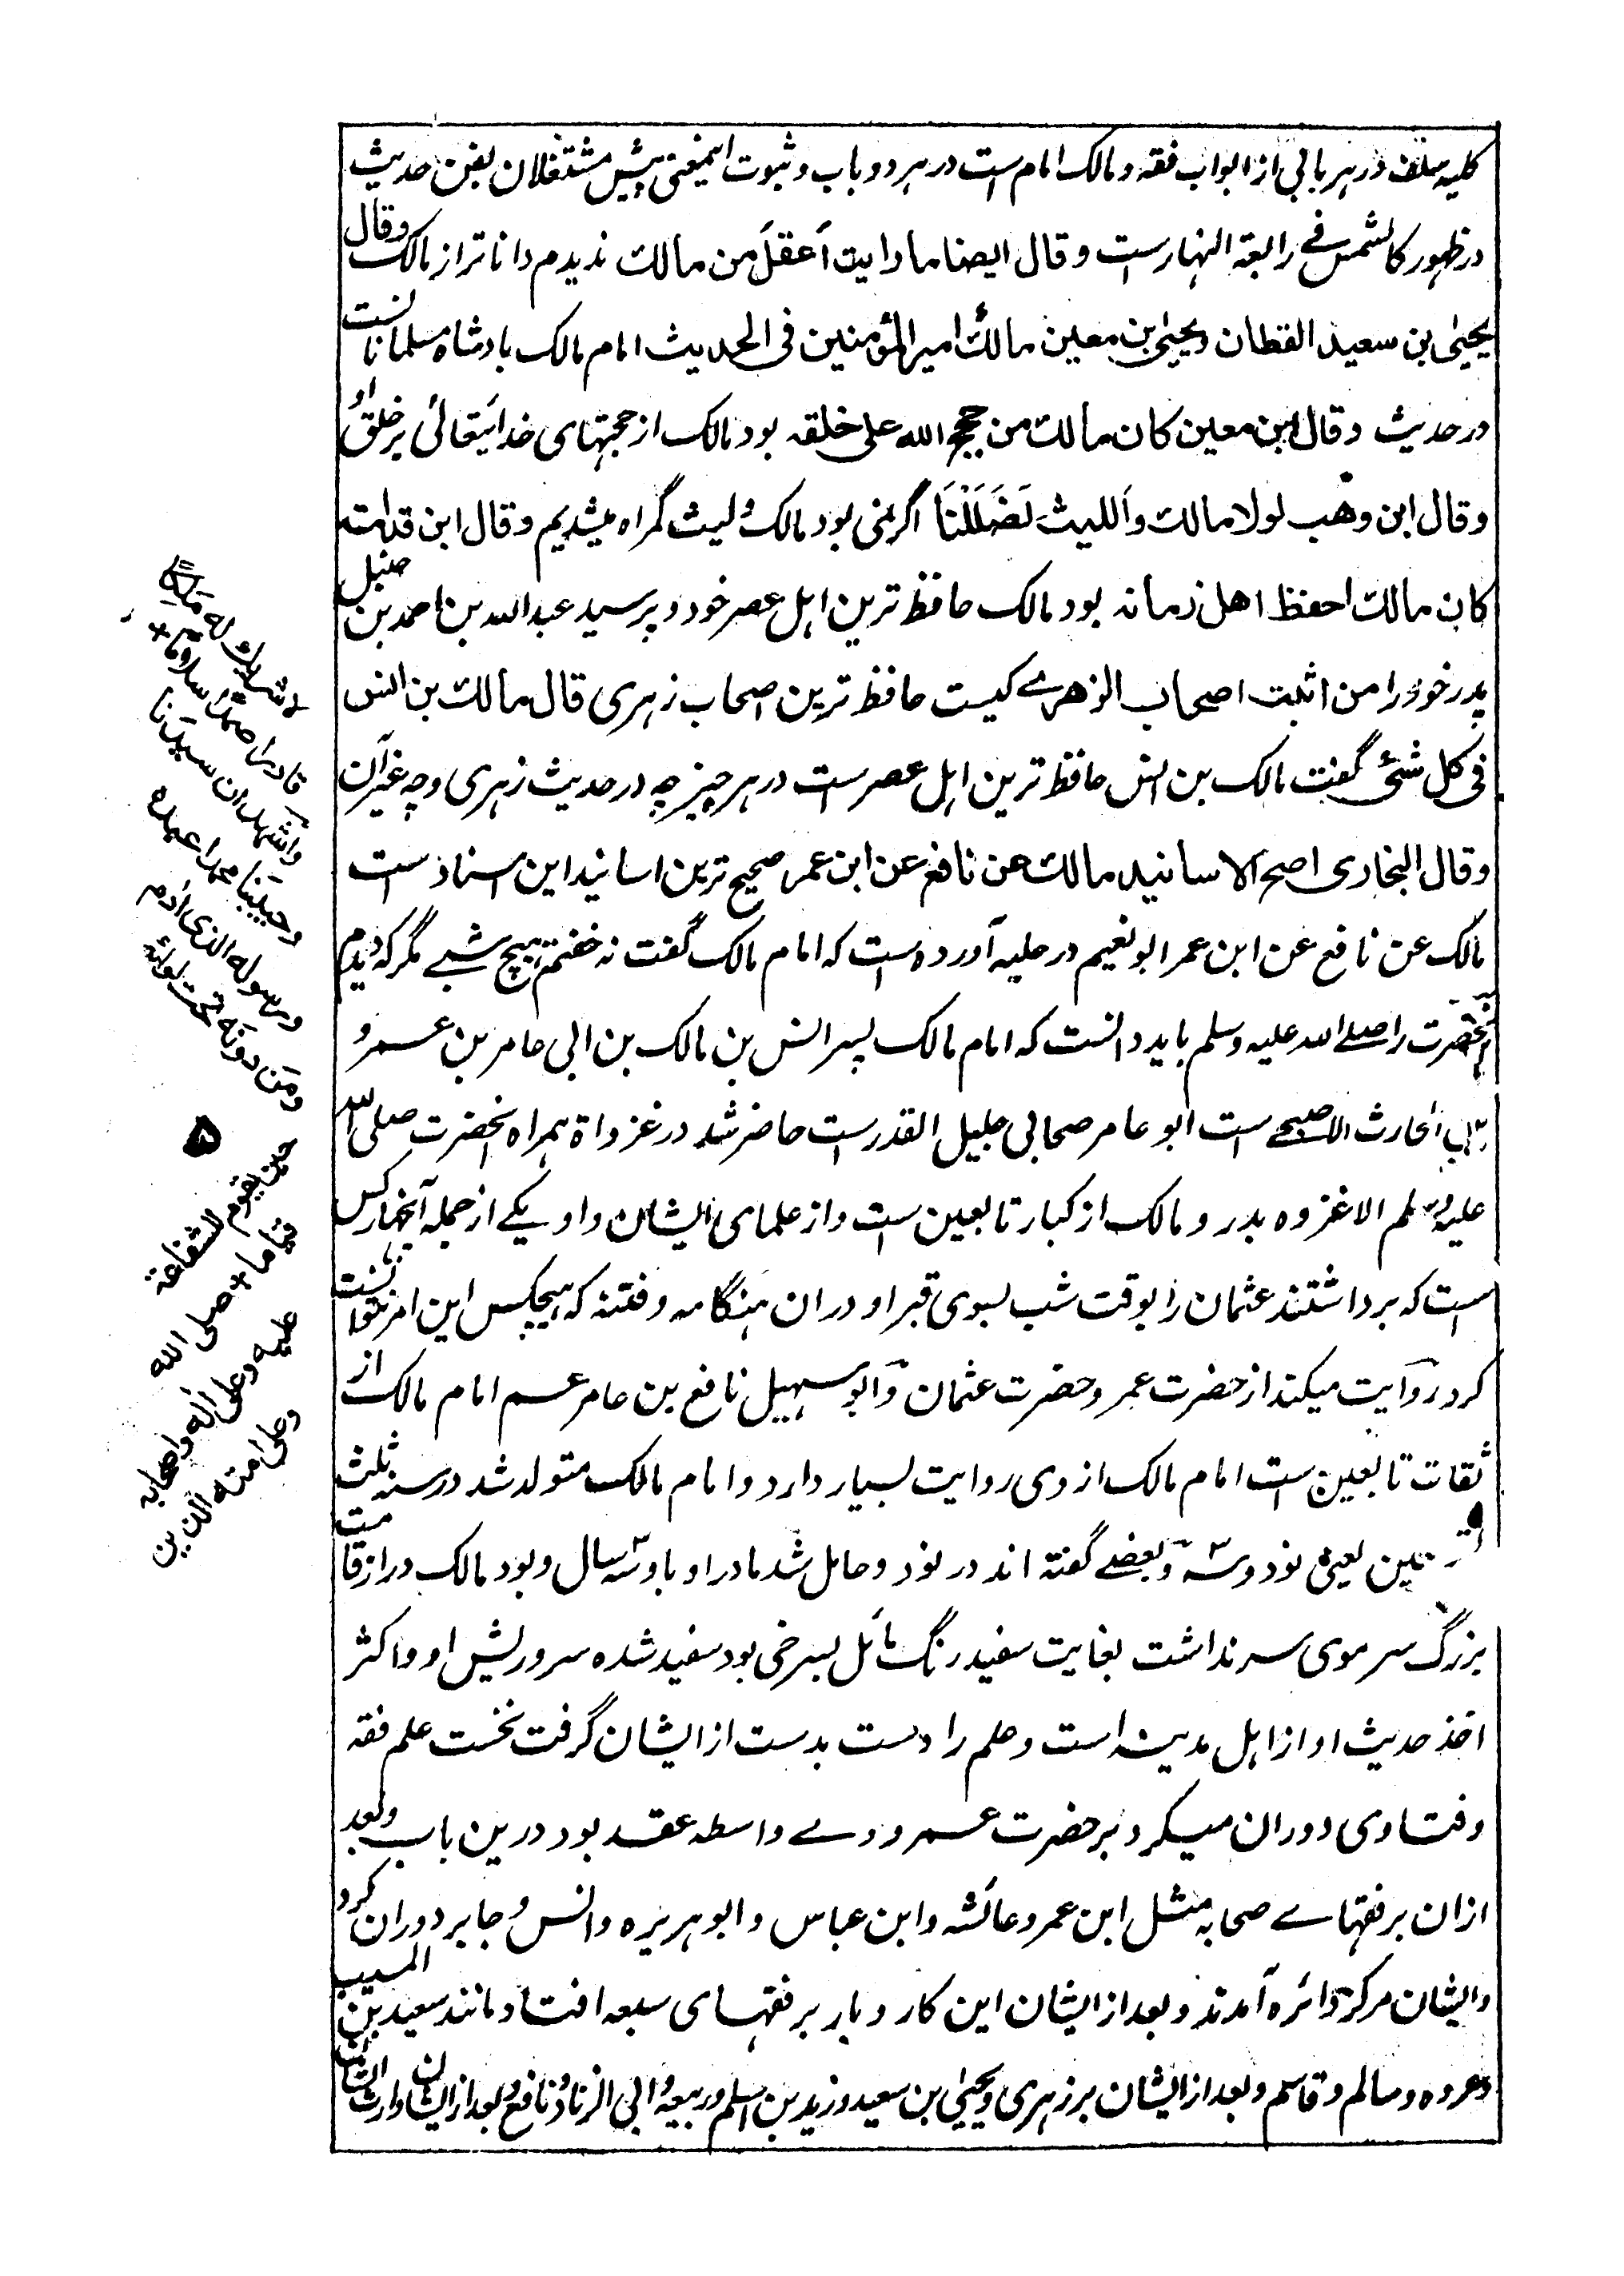 کلیه سلف در هر بابی از ابواب فقه و مالک امام است در هر دو باب و ثبوت اینمعنی پیش مشتغلان بفن حدیث
در ظهور کالشمس فے رابعة النهارست و قال ایضا ما رایت أعقلَ من مالك ندیدم داناتر از مالک وقال
یحیٰی بن سعید القطان و یحیٰی بن معین مالكٌ امیر المؤمنین فی الحدیث امام مالک بادشاه مسلمانانست
در حدیث و قال ابن معین کان مالك من حجج الله علی خلقه بود مالک از حجتهای خدایتعالیٰ بر خلق او
و قال ابن وهب لولا مالك واللیث لَضَلَلْنَا اگر نمی بود مالک و لیث گمراه میشدیم و قال ابن قدامه
کان مالك احفظ اهل زمانه بود مالک حافظ ترین اہل عصر خود و پرسید عبدالله بن احمد بن حنبل
پدر خود را من اثبت اصحاب الزهرے کیست حافظ ترین اصحاب زہری قال مالك بن انس
فی کل شئ گفت مالک بن انس حافظ ترین اہل عصرست در ہر چیز چه در حدیث زہری و چه غیر آن
وقال البخاری اصح الاسانید مالك عن نافع عن ابن عمر صحیح ترین اسانید این اسناد ست
مالک عن نافع عن ابن عمر ابو نعیم در حلیه آورده ست که امام مالک گفت نه خفتم ہیچ شبے مگر که دیدم
آنحضرت را صلے الله علیه وسلم باید دانست که امام مالک پسر انس بن مالک بن ابی عامر بن عمرو
بن الحارث الاصبحے ست ابو عامر صحابی جلیل القدرست حاضر شد در غزواة ہمراه آنحضرت صلی الله
علیه وسلم الا غزوه بدر و مالک از کبار تابعین ست و از علمای ایشان و او یکے از جمله آنچهار کس
ست که برداشتند عثمان را بوقت شب بسوی قبر او دران ہنگامه و فتنه که ہیچکس این امر نتوانست
کرد روایت میکند از حضرت عمر و حضرت عثمان و ابو سهیل نافع بن عامر عم امام مالک از
ثقات تابعین ست امام مالک از وی روایت بسیار دارد و امام مالک متولد شد در سنه ثلث
و تسعین یعنی نود و سه و بعضے گفته اند در نود و حامل شد مادر او باو سه سال و بود مالک دراز قامت
بزرگ سر موی سر نداشت بغایت سفید رنگ مائل بسرخی بود سفید شده سر و ریش او و اکثر
اخذ حدیث او از اہل مدینه است و علم را دست بدست از ایشان گرفت نخست علم فقه
و فتاوی دوران میکرد بر حضرت عمر و وے واسطه عقد بود درین باب و بعد
ازان بر فقهاے صحابه مثل ابن عمر و عائشه و ابن عباس و ابو ہریره و انس و جابر دوران کرد
و ایشان مرکز دائره آمدند و بعد از ایشان این کار و بار بر فقهای سبعه افتاد مانند سعید بن المسیب
و عروه و سالم و قاسم و بعد از ایشان بر زہری و یحیٰی بن سعید و زید بن اسلم و ربیعه و ابی الزناد و نافع و بعد از ایشان وارث
لا شریك له مَلِكًا
قادرا صمدا سلاما +
واشهد ان سیدنا
وحبیبنا محمدا عبده
ورسوله الذی آدم
ومن دونه تحت لوائه
۵
حین یقوم للشفاعة
قیاما + صلی الله
علیه وعلی آله واصحابه
وعلی امته الذین